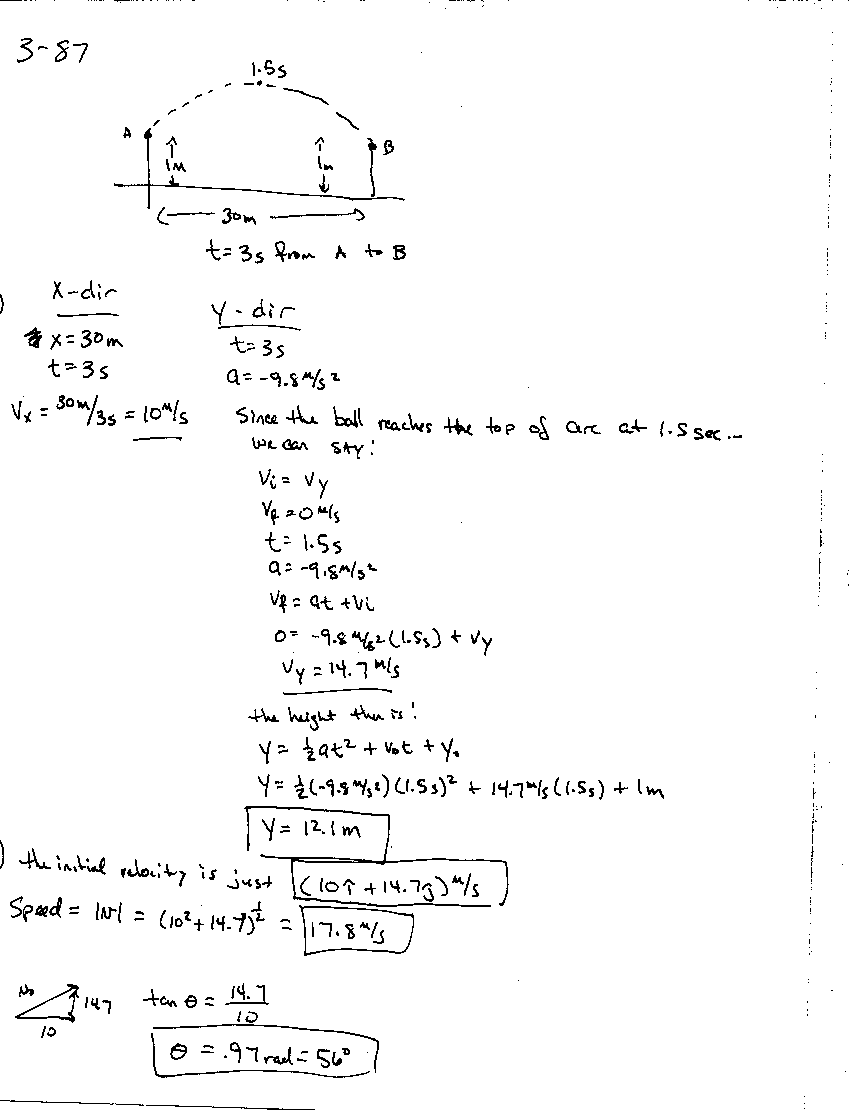 3-87
1.5s
A
B
1m
1m
30m
t=3s from A to B
)
X-dir
Y-dir
x=30m
t=3s
t=3s
a=-9.8 m/s²
Vx = 30m/3s = 10 m/s
Since the ball reaches the top of arc at 1.5 sec...
we can say:
Vi = Vy
Vf = 0 m/s
t = 1.5s
a = -9.8 m/s²
Vf = at + Vi
0 = -9.8 m/s² (1.5s) + Vy
Vy = 14.7 m/s
the height then is:
Y = ½at² + V₀t + Y₀
Y = ½(-9.8 m/s²)(1.5s)² + 14.7 m/s (1.5s) + 1m
Y = 12.1m
) the initial velocity is just (10î + 14.7ĵ) m/s
Speed = |v| = (10² + 14.7²)^½ = 17.8 m/s
v₀
14.7
10
tan θ = 14.7/10
θ = .97 rad = 56°